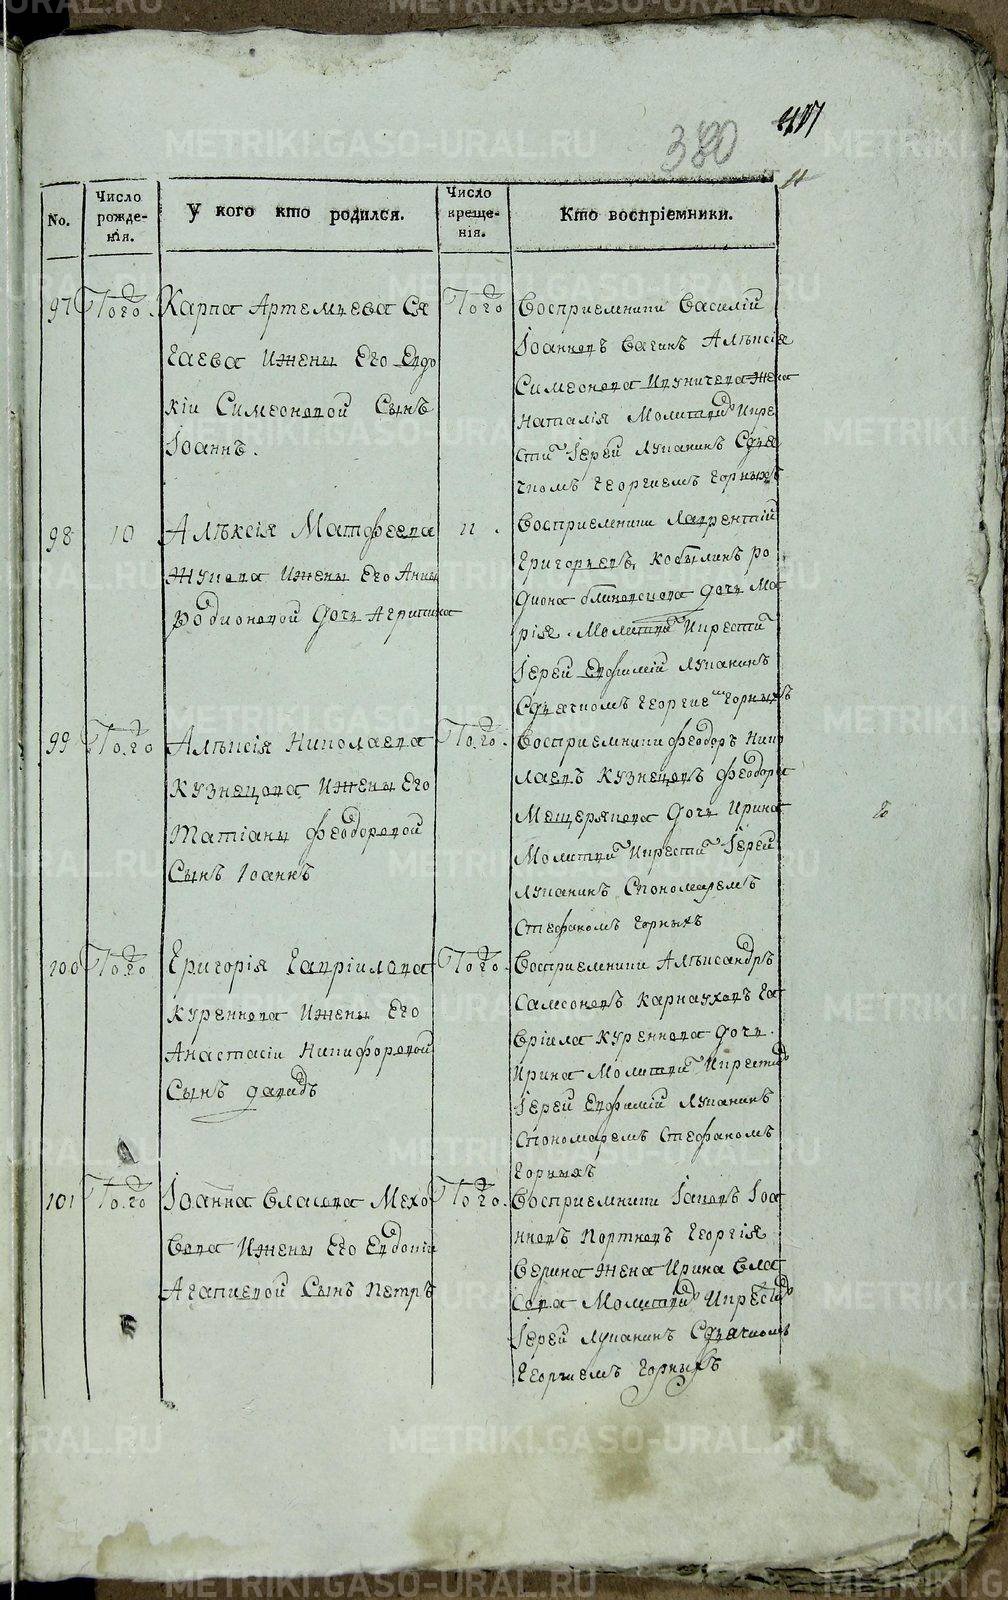 380
No.
Число рожде-нія.
У кого кто родился.
Число креще-нія.
Кто воспріемники.
97
Того.
Карпа Артемьева Ся
гаева Ижены Его Евдо
кіи Симеоновой Сынъ
Іоаннъ.
Того
Восприемники Василий
Іоанновъ Вагинъ Алѣксія
Симеонова жена
Наталія Молитвой Икре
сти Іерей Лукапинъ Сдья
чкомъ Георгиемъ Горныхъ
98
10
Алѣксія Матфеева
Жукова Ижены Его Анны
Родионовой Дочь Агрипина
11.
Восприемники Лаврентий
Григорьевъ, Кобылинъ Ро
диона Дочь Ма
рія. Молитвой Икрестил
Іерей Евфимій Лукапинъ
Сдьячкомъ Георгием Горныхъ
99
Того
Алѣксія Николаева
Кузнецова Ижены Его
Татіаны Феодоровой
Сынъ Іоаннъ
Того.
Восприемники Феодоръ Нико
лаевъ Кузнецовъ Феодора
Мещерякова Дочь Ирина
Молитвой Икрестил Іерей
Лукапинъ Спономаремъ
Стефаномъ Горныхъ
100
Того
Григорія Гавріилова
Куреннова Ижены Его
Анастасіи Никифоровой
Сынъ Давидъ
Того.
Восприемники Алѣксандръ
Самсоновъ Карнауховъ Га
вріила Куреннова Дочь.
Ирина Молитвой Икрестил
Іерей Евфимій Лукапинъ
Спономаремъ Стефаномъ
Горныхъ
101
Того
Іоанна Власова Мехо
Ижены Его Евдокіи
Агапиевой Сынъ Петръ
Того.
Восприемники Іаковъ Іоа
нновъ Портновъ Георгія
Жена Ирина Вла
сова Молитвой Икрестил
Іерей Лукапинъ Сдьячкомъ
Георгиемъ Горныхъ
METRIKI.GASO-URAL.RU